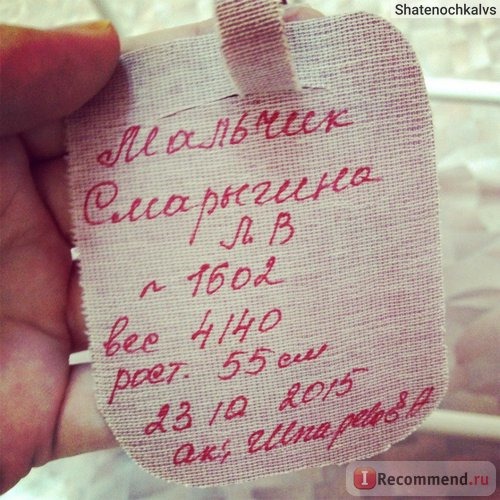 Shatenochkalvs
Мальчик
Смарыгина
Л В
~ 1602
вес 4140
рост. 55 см
23 10 2015
ак,
IRecommend.ru